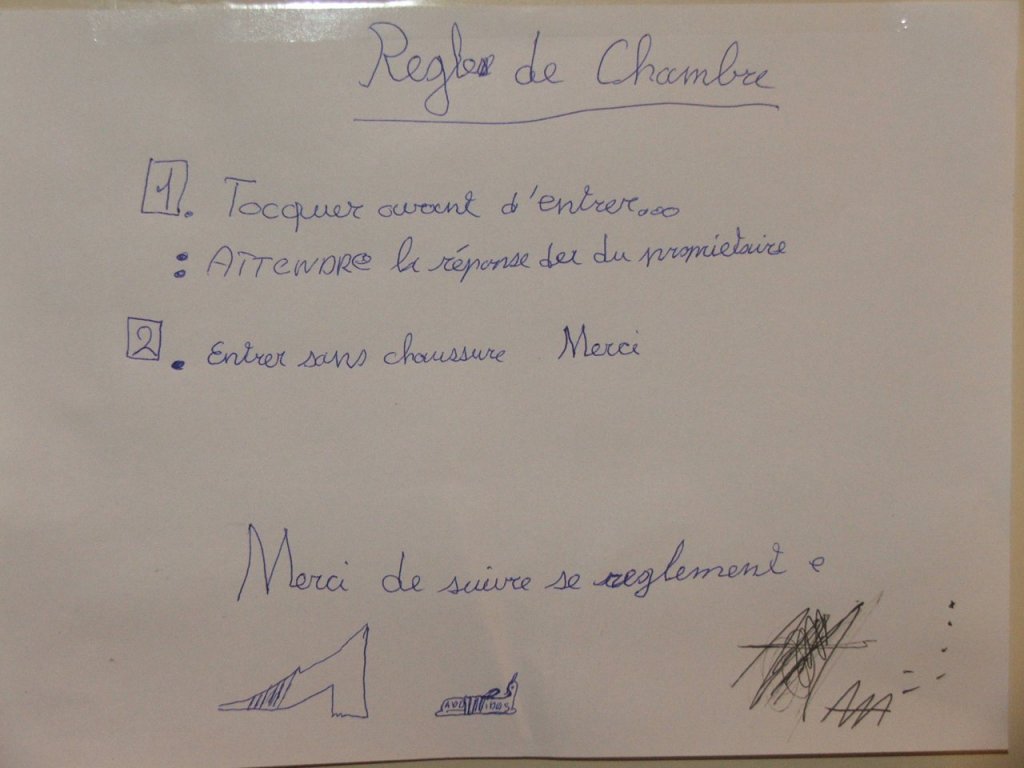 Regles de Chambre
1. Tocquer avant d'entrer...
: ATTENDRE la réponse du propriétaire
2. Entrer sans chaussure Merci
Merci de suivre se reglement